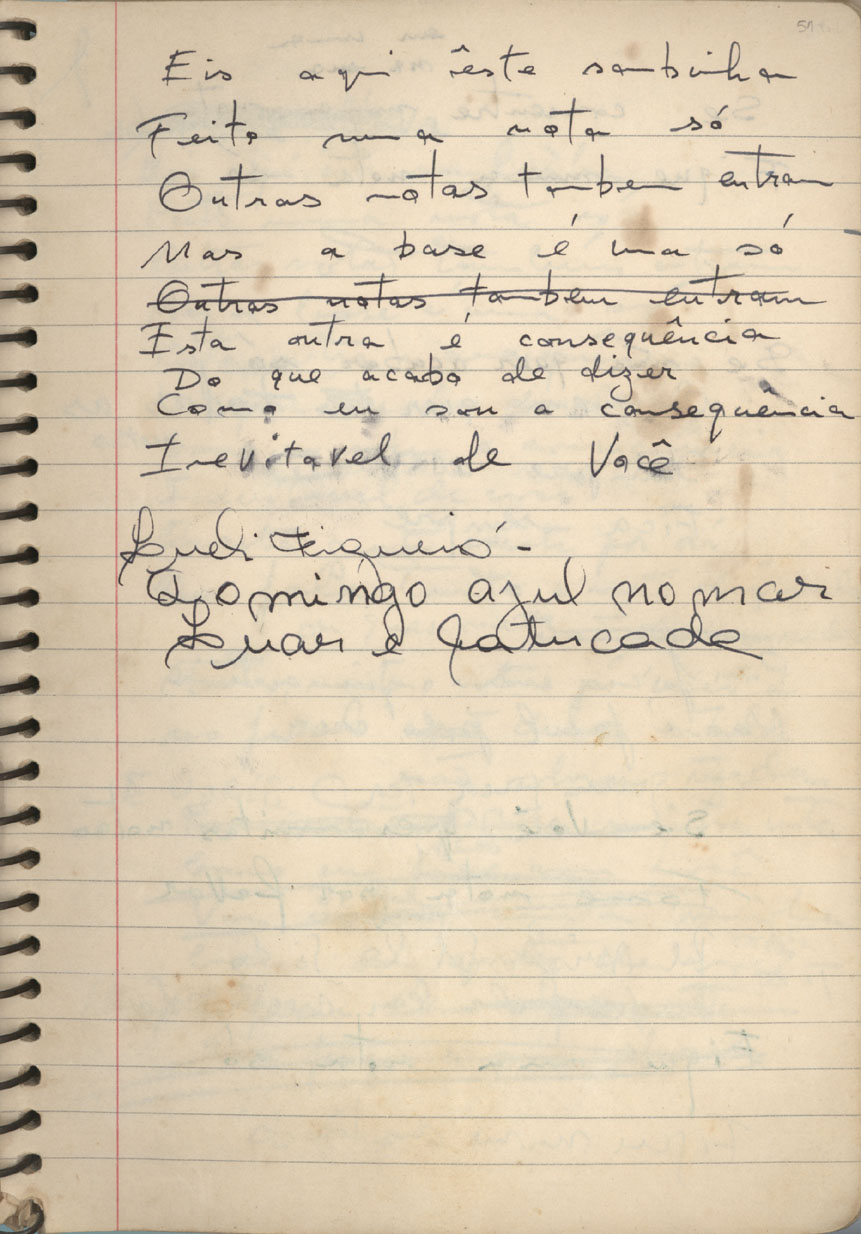 Eis aqui êste sambinha
Feito numa nota só
Outras notas tambem entram
Mas a base é uma só
Outras notas tambem entram
Esta outra é consequência
Do que acabo de dizer
Como eu sou a consequência
Inevitavel de Você
Sueli
Domingo azul no mar
Luar e batucada